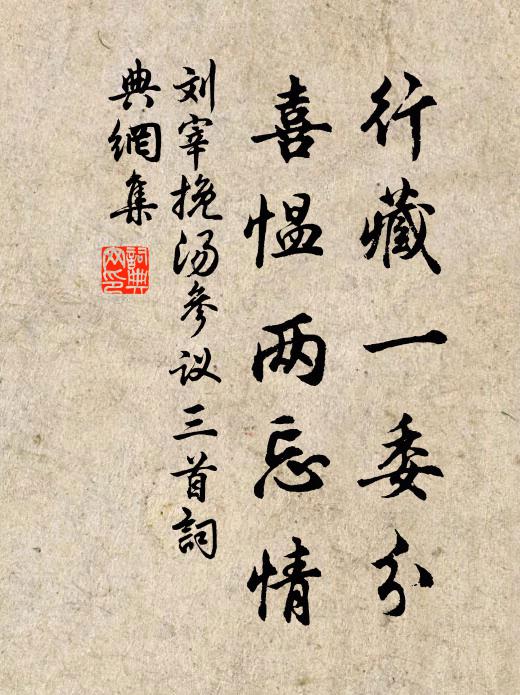 行藏一委分
喜愠两忘情
刘宰挽汤参议三首詞
典網集
詞典
文印